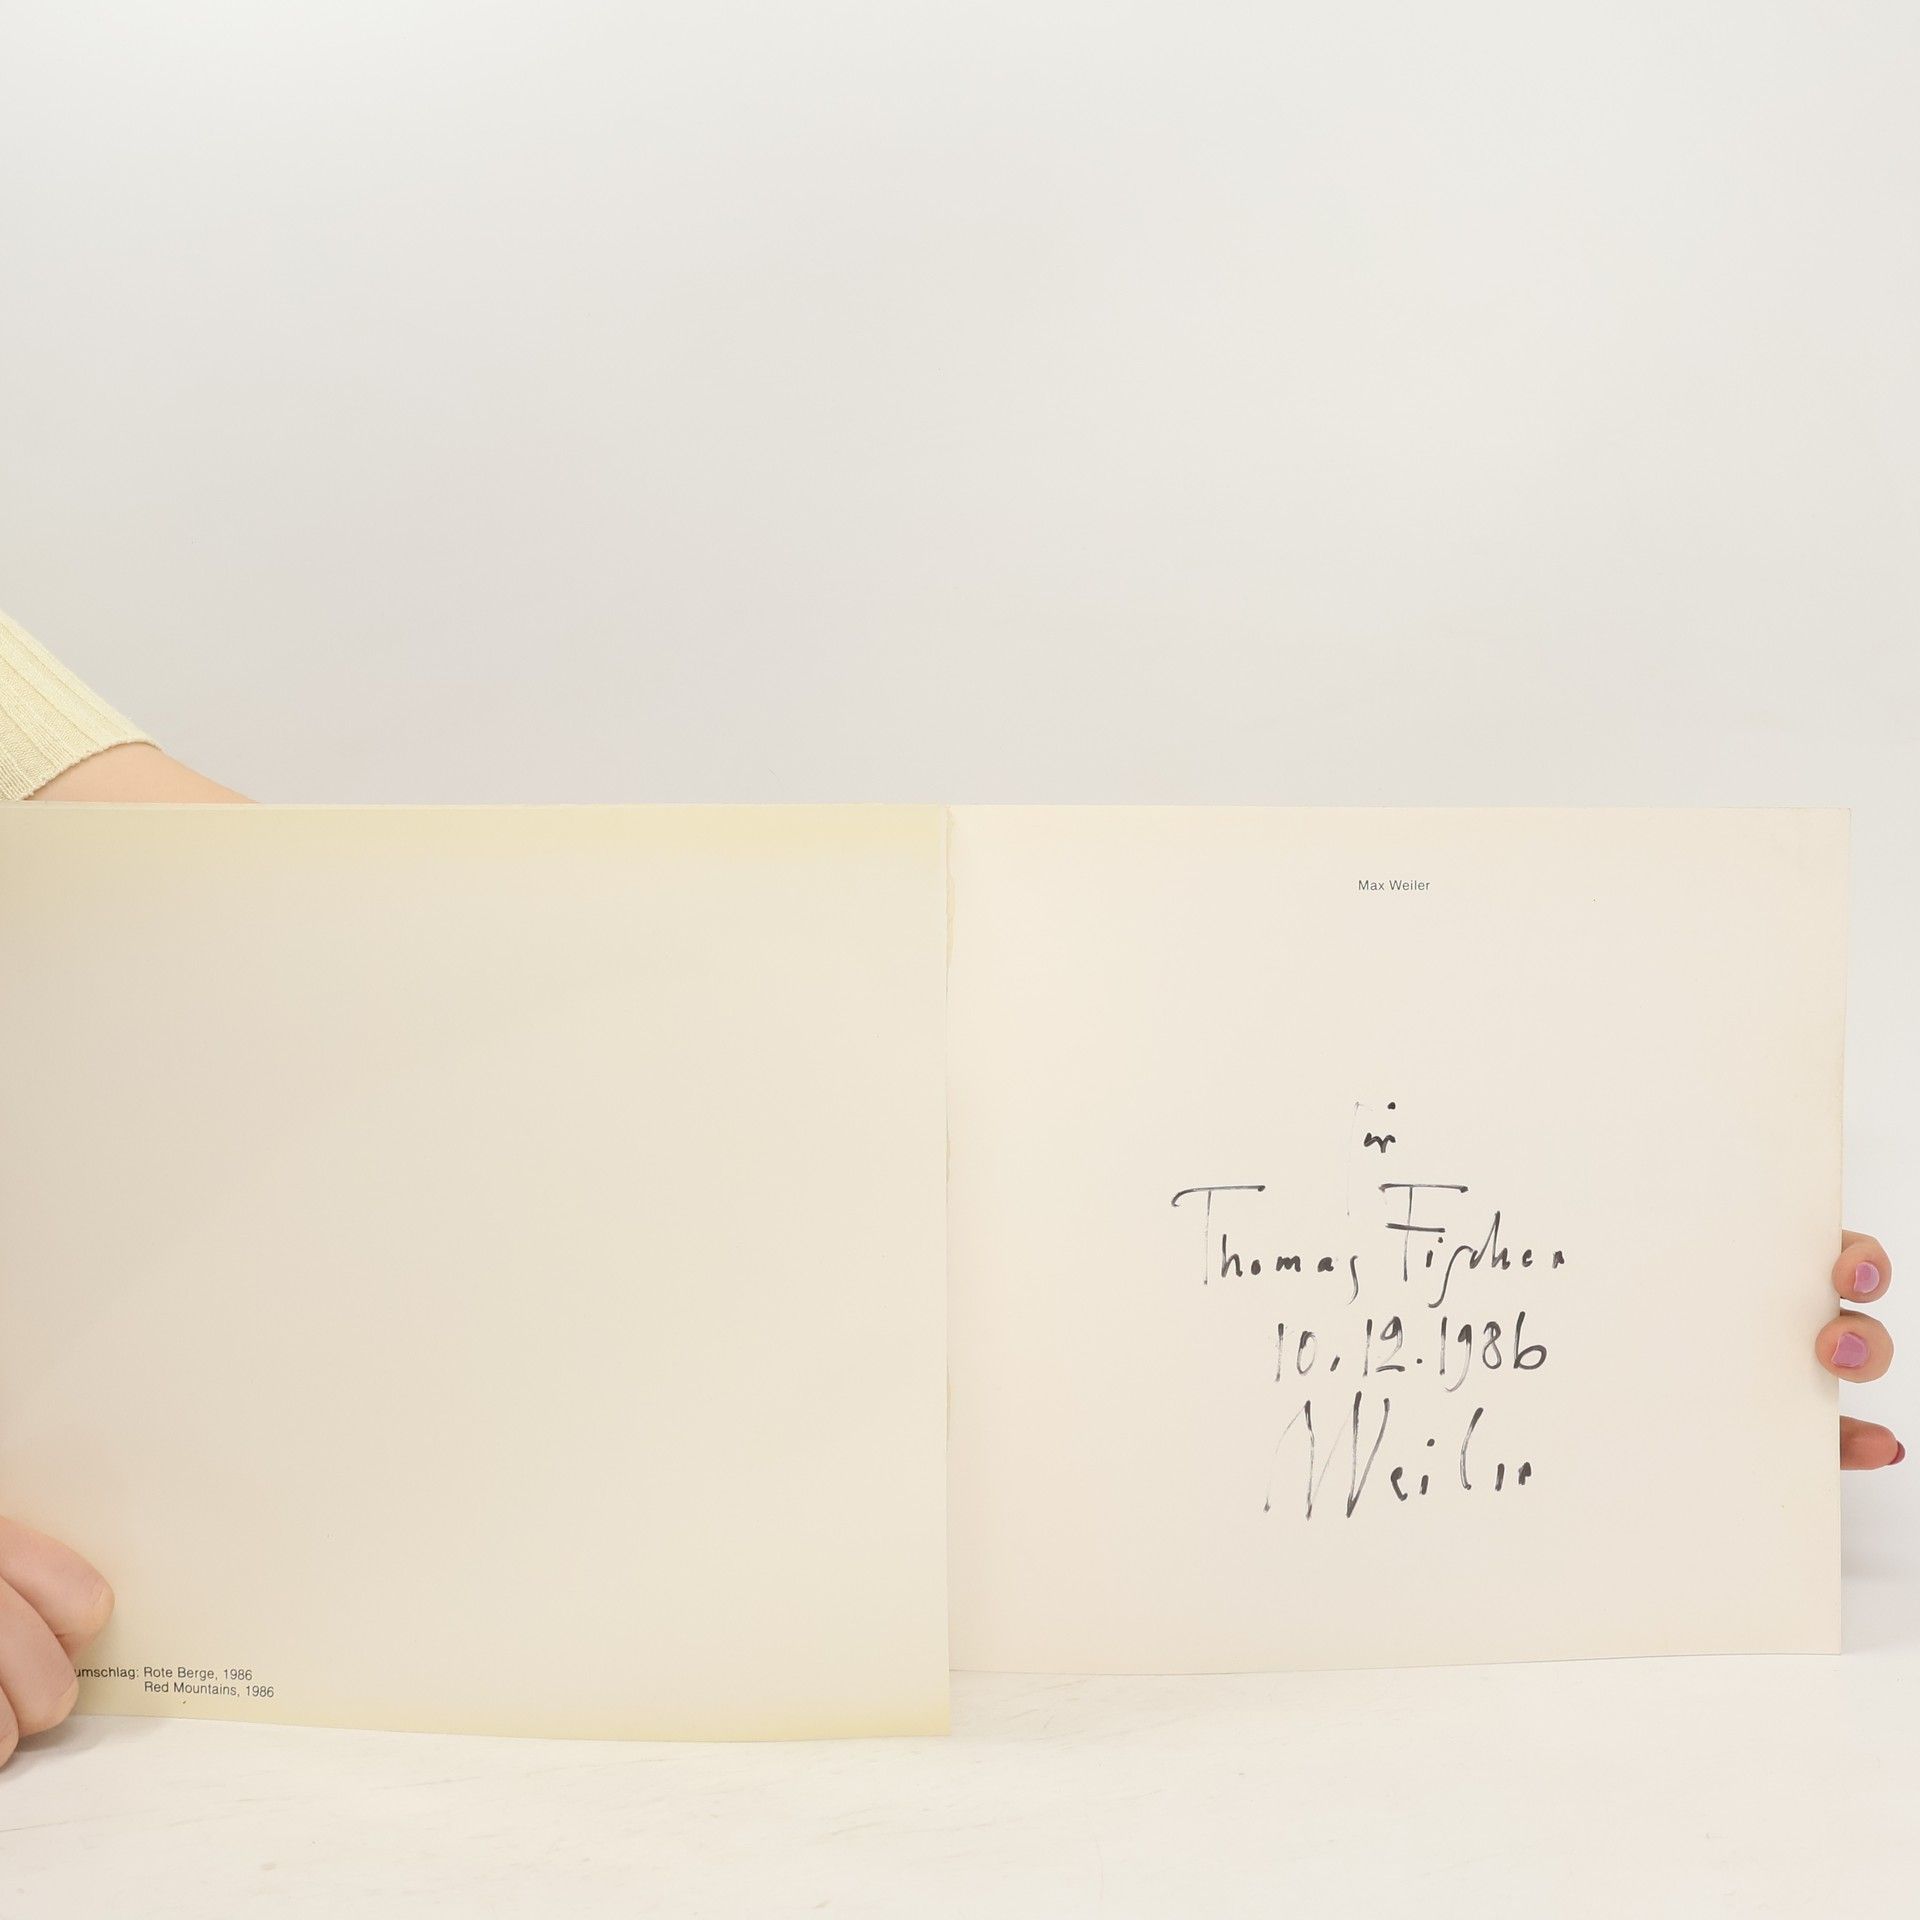 umschlag: Rote Berge, 1986
Red Mountains, 1986
Max Weiler
für
Thomas Fischer
10.12.1986
Weiler